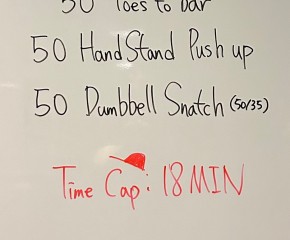 50 Toes to bar
50 HandStand Push up
50 Dumbbell Snatch (50/35)
Time Cap: 18 MIN